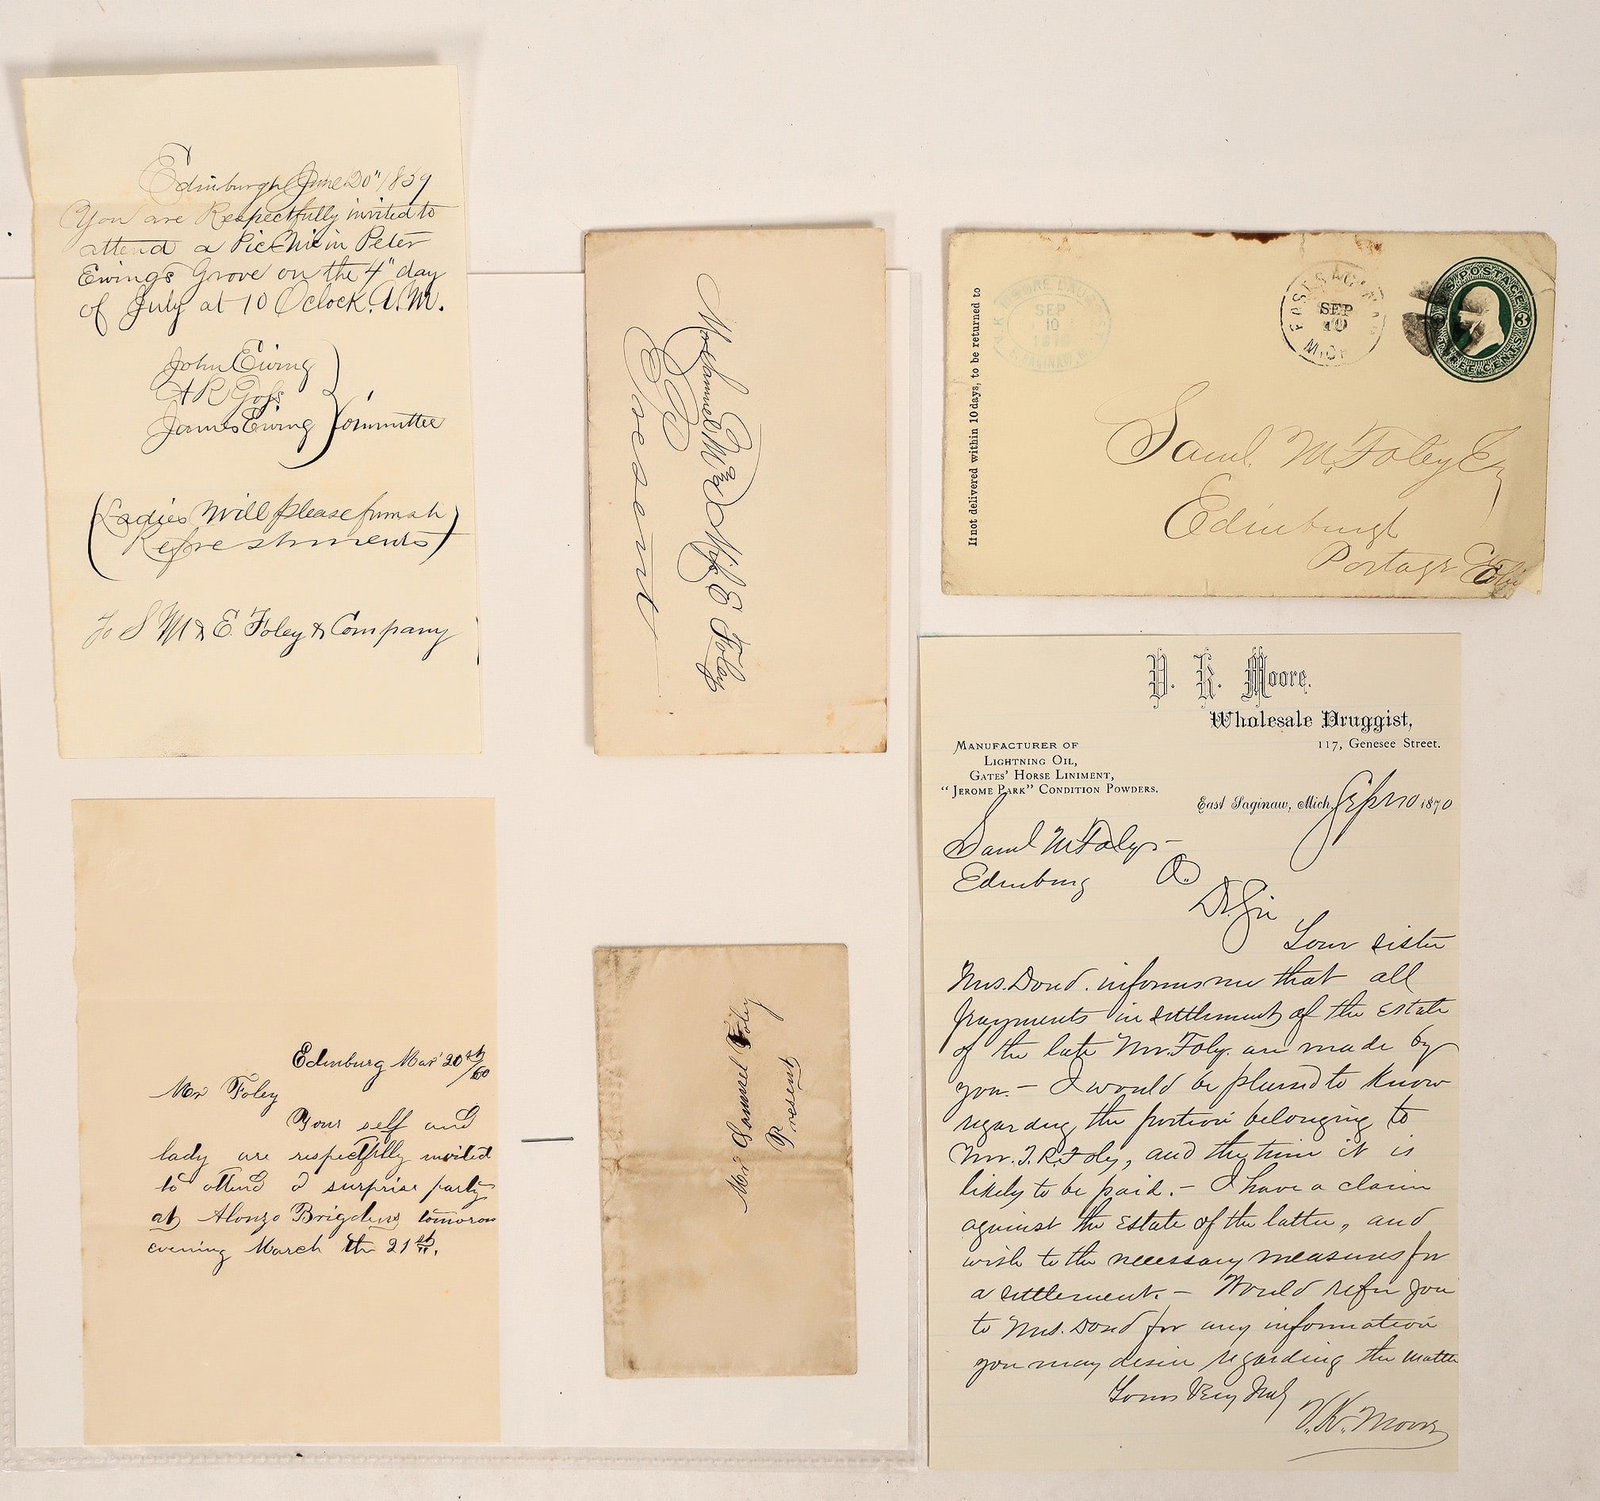 Edinburgh June 20" 1859
You are Respectfully invited to
attend a Pic Nic in Peter
Ewings Grove on the 4" day
of July at 10 Oclock. A.M.
John Ewing
A R Goss
James Ewing
Committee
(Ladies Will please furnish
Refreshments)
To S M & E Foley & Company
Edinburg Mar 20th/60
Mr Foley
Your self and
lady are respectfully invited
to attend a surprise party
at Alonzo Brigdens tomorow
evening March the 21st.
Samuel M
E Foley
Present
Mr Samuel Foley
Present
If not delivered within 10 days, to be returned to
SEP
10
EAST SAGINAW
SEP
10
MICH
U.S. POSTAGE
3
THREE CENTS
Saml. M. Foley Esq
Edinburgh
Portage Co
V. K. Moore.
Wholesale Druggist,
117, Genesee Street.
MANUFACTURER OF
LIGHTNING OIL,
GATES' HORSE LINIMENT,
"JEROME PARK" CONDITION POWDERS.
East Saginaw, Mich. Sept 10 1870
Saml M Foley -
Edinburg O.
Dr. Sir
Your sister
Mrs. Doud. informs me that all
payments in settlement of the Estate
of the late Mr. Foly. are made by
you. - I would be pleased to know
regarding the portion belonging to
Mr. J. R. Foley, and the time it is
likely to be paid. - I have a claim
against the Estate of the latter, and
wish to the necessary measures for
a settlement. - Would refer you
to Mrs. Doud for any information
you may desire regarding the matter
Yours Very Truly
V. K. Moore